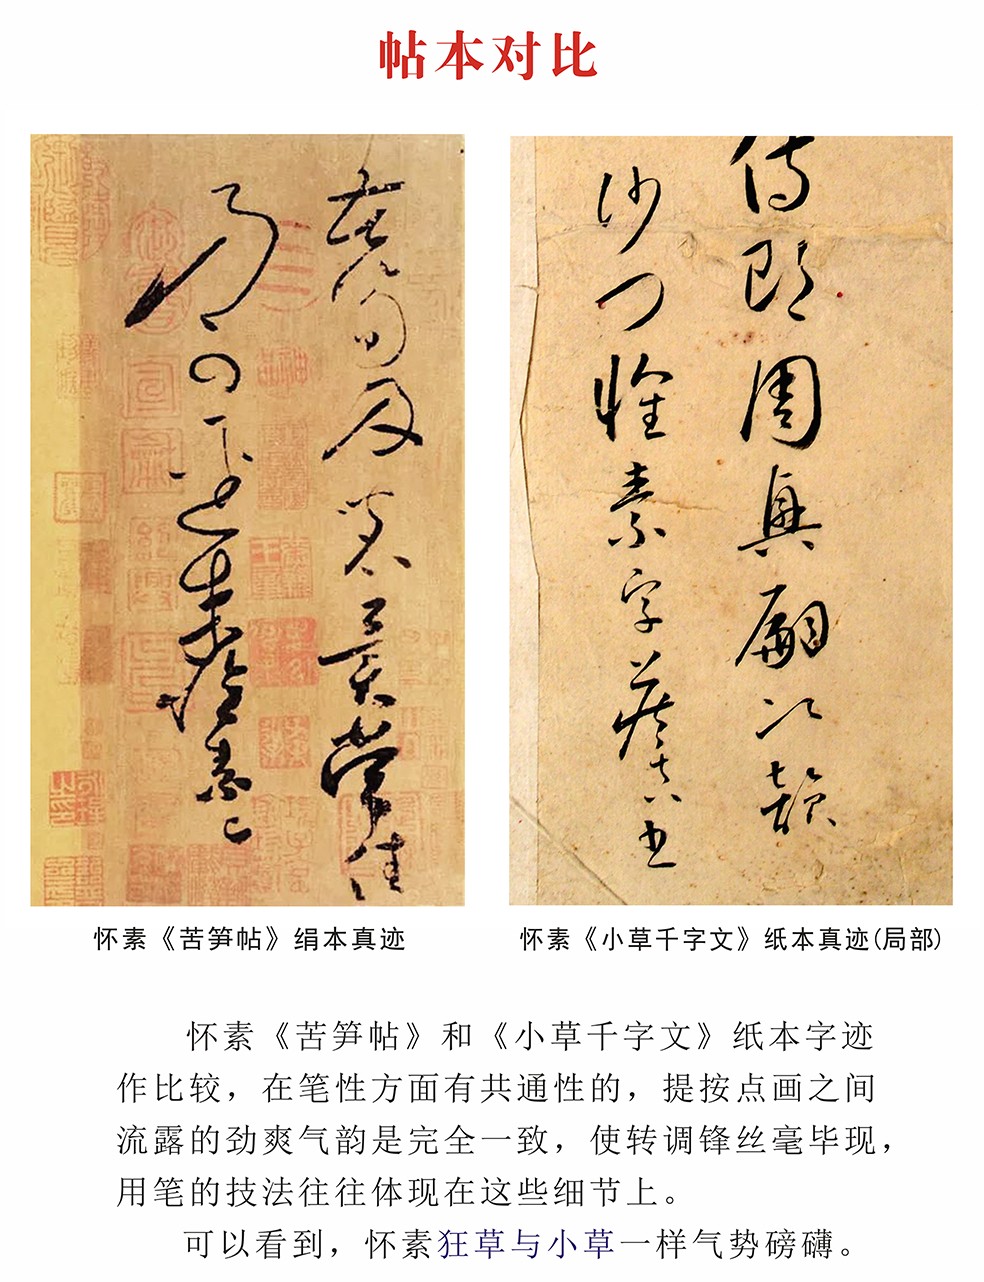 帖本对比
苦笋及茗异常佳
乃可迳来怀素上
侍郎周兴嗣次韵
沙门怀素字藏真书
怀素《苦笋帖》绢本真迹
怀素《小草千字文》纸本真迹(局部)
怀素《苦笋帖》和《小草千字文》纸本字迹
作比较，在笔性方面有共通性的，提按点画之间
流露的劲爽气韵是完全一致，使转调锋丝毫毕现，
用笔的技法往往体现在这些细节上。
可以看到，怀素狂草与小草一样气势磅礴。